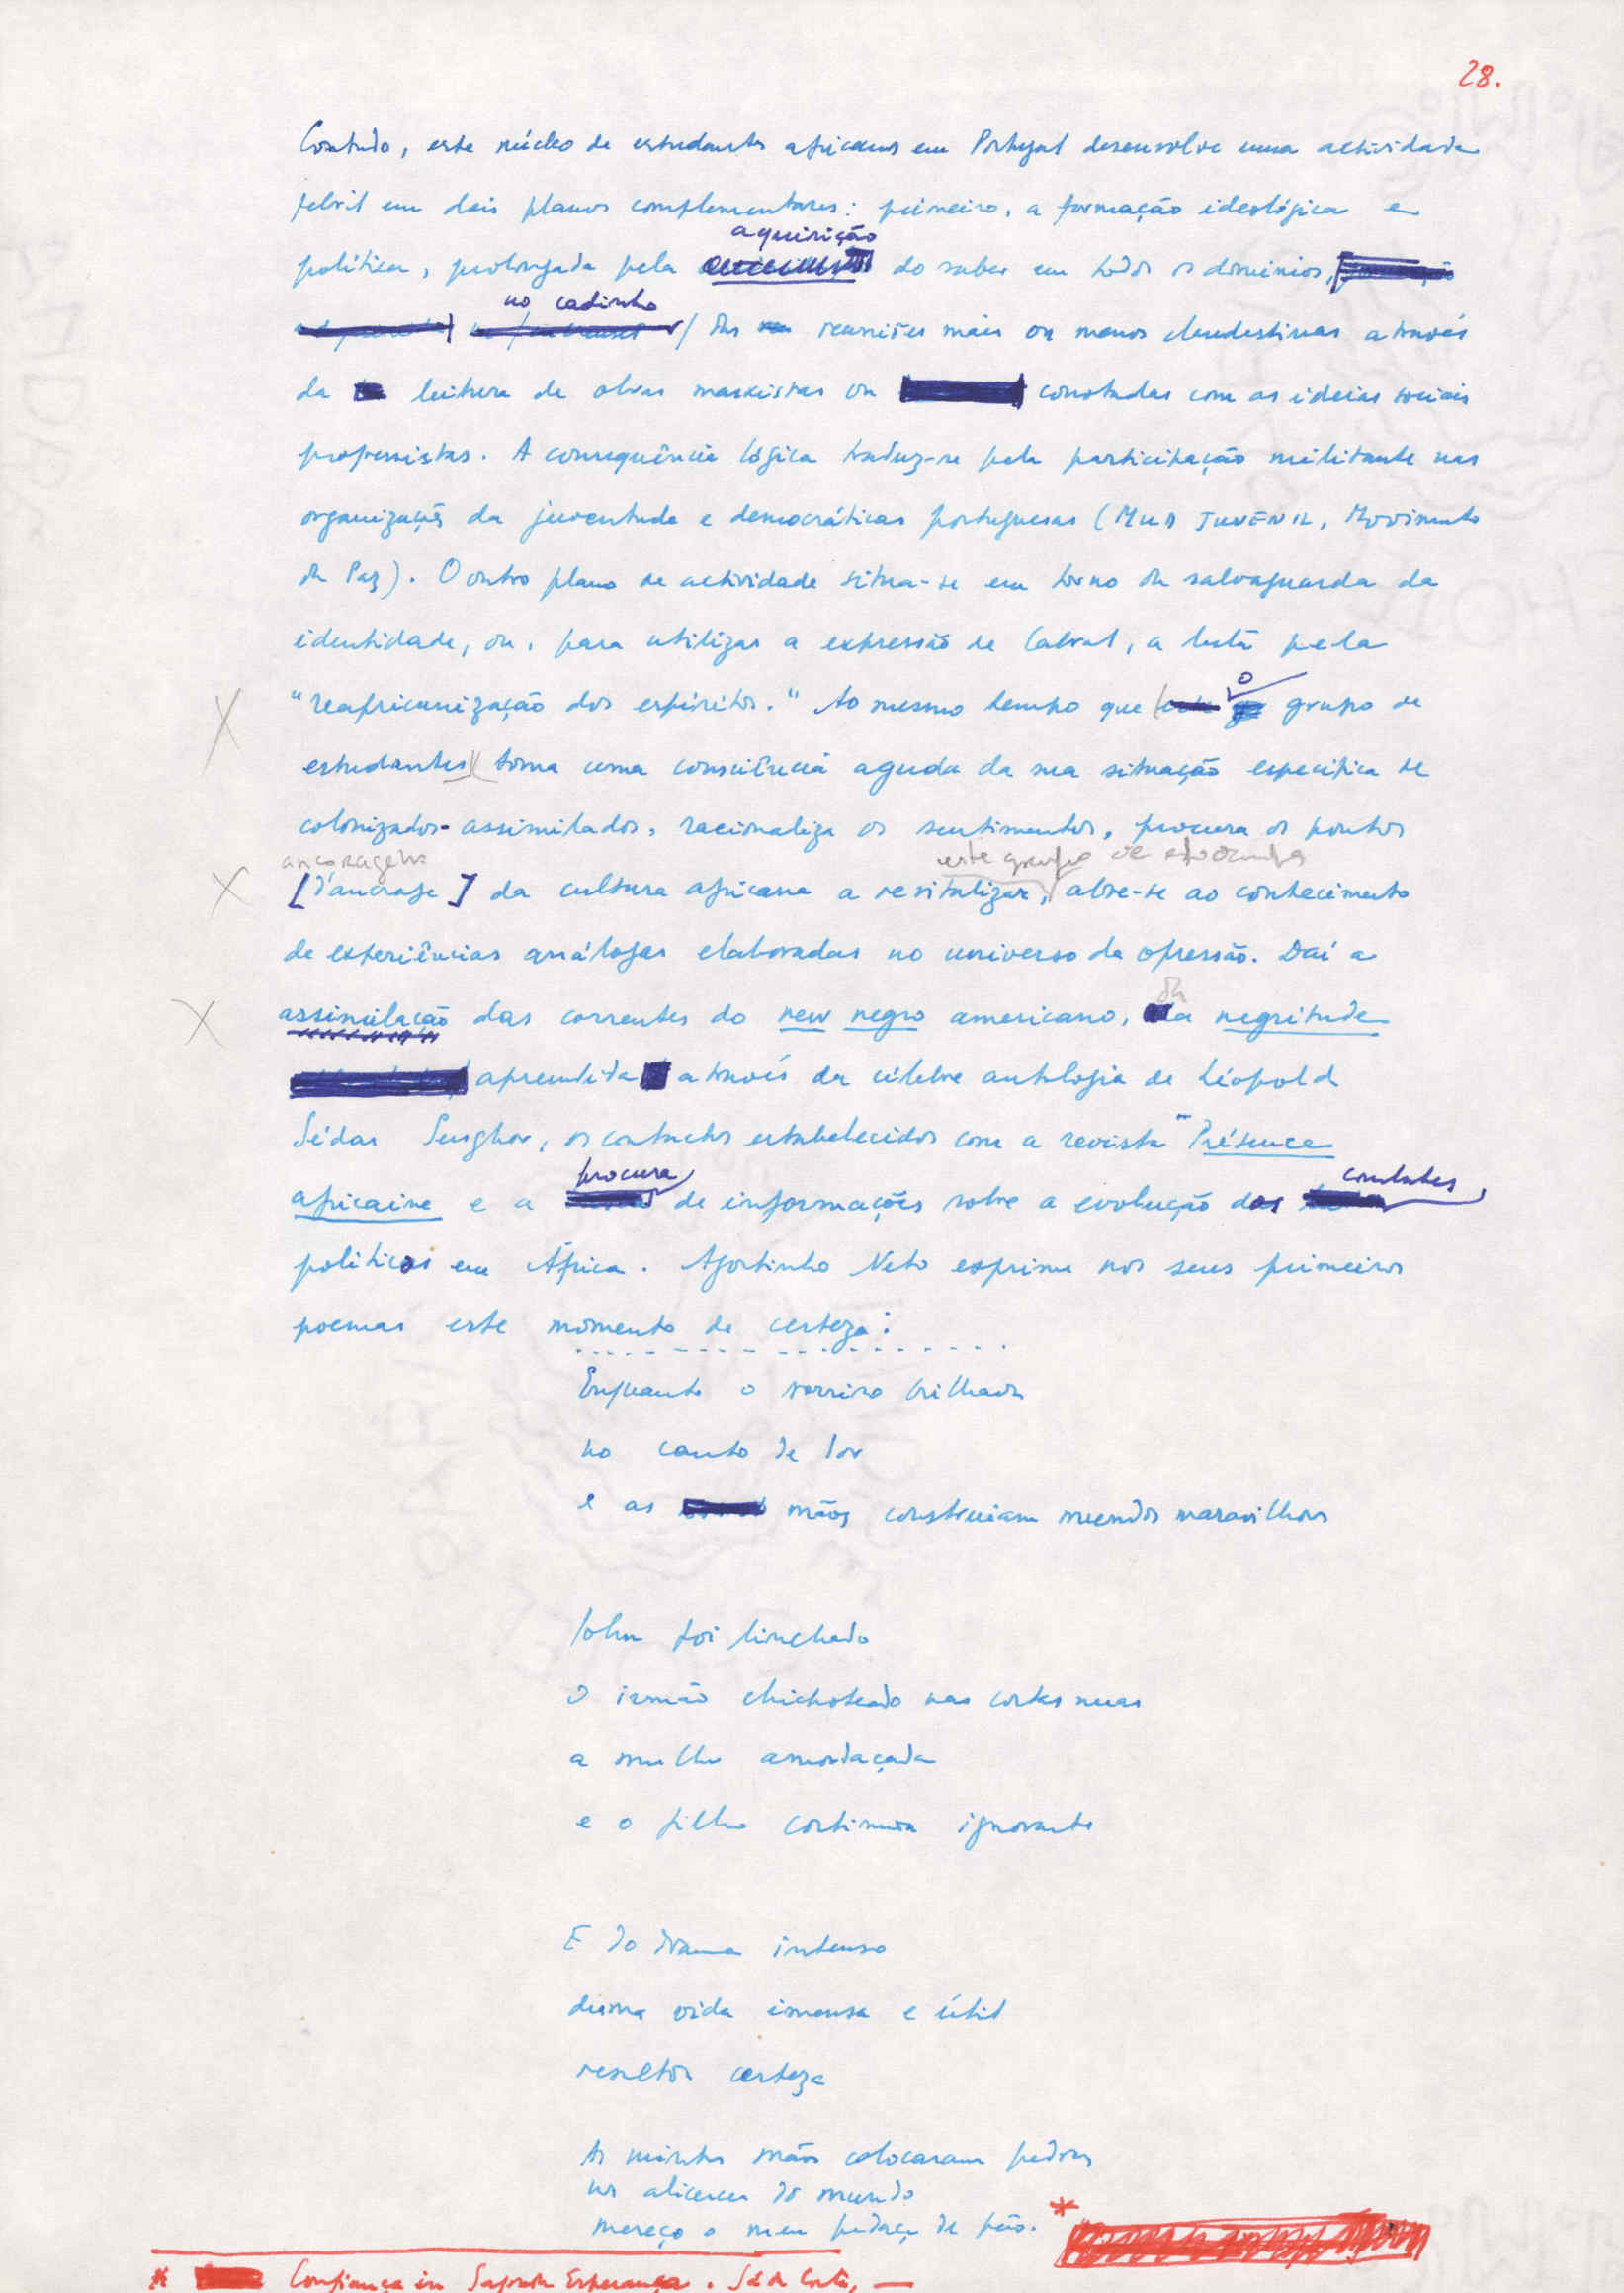 28.
Contudo, este núcleo de estudantes africanos em Portugal desenvolve uma actividade
febril em dois planos complementares: primeiro, a formação ideológica e
aquisição
política, prolongada pela do saber em todos os domínios,
no cadinho
das reuniões mais ou menos clandestinas através
da leitura de obras marxistas ou conotadas com as ideias sociais
progressistas. A consequência lógica traduz-se pela participação militante nas
organizações da juventude e democráticas portuguesas (MUD JUVENIL, Movimento
da Paz). O outro plano de actividade situa-se em torno da salvaguarda da
identidade, ou, para utilizar a expressão de Cabral, a luta pela
o
"reafricanização dos espíritos." Ao mesmo tempo que grupo de
estudantes toma uma consciência aguda da sua situação específica de
colonizados-assimilados, racionaliza os sentimentos, procura os pontos
ancoragem este grupo de estudantes
[d'ancrage] da cultura africana a revitalizar, abre-se ao conhecimento
de experiências análogas elaboradas no universo da opressão. Daí a
da
assimilação das correntes do new negro americano, a negritude
aprendida através da célebre antologia de Léopold
Sédar Senghor, os contactos estabelecidos com a revista "Présence
procura combates
africaine e a de informações sobre a evolução dos
políticos em África. Agostinho Neto exprime nos seus primeiros
poemas este momento de certeza:
Enquanto o sorriso brilhava
no canto de dor
e as mãos construiam mundos maravilhosos
John foi linchado
O irmão chicoteado nas costas nuas
a mulher amordaçada
e o filho continuou ignorante
E do drama intenso
duma vida imensa e útil
resultou certeza
As minhas mãos colocaram pedras
nos alicerces do mundo
mereço o meu pedaço de pão. *
* Confiança in Sagrada Esperança. Sá da Costa,